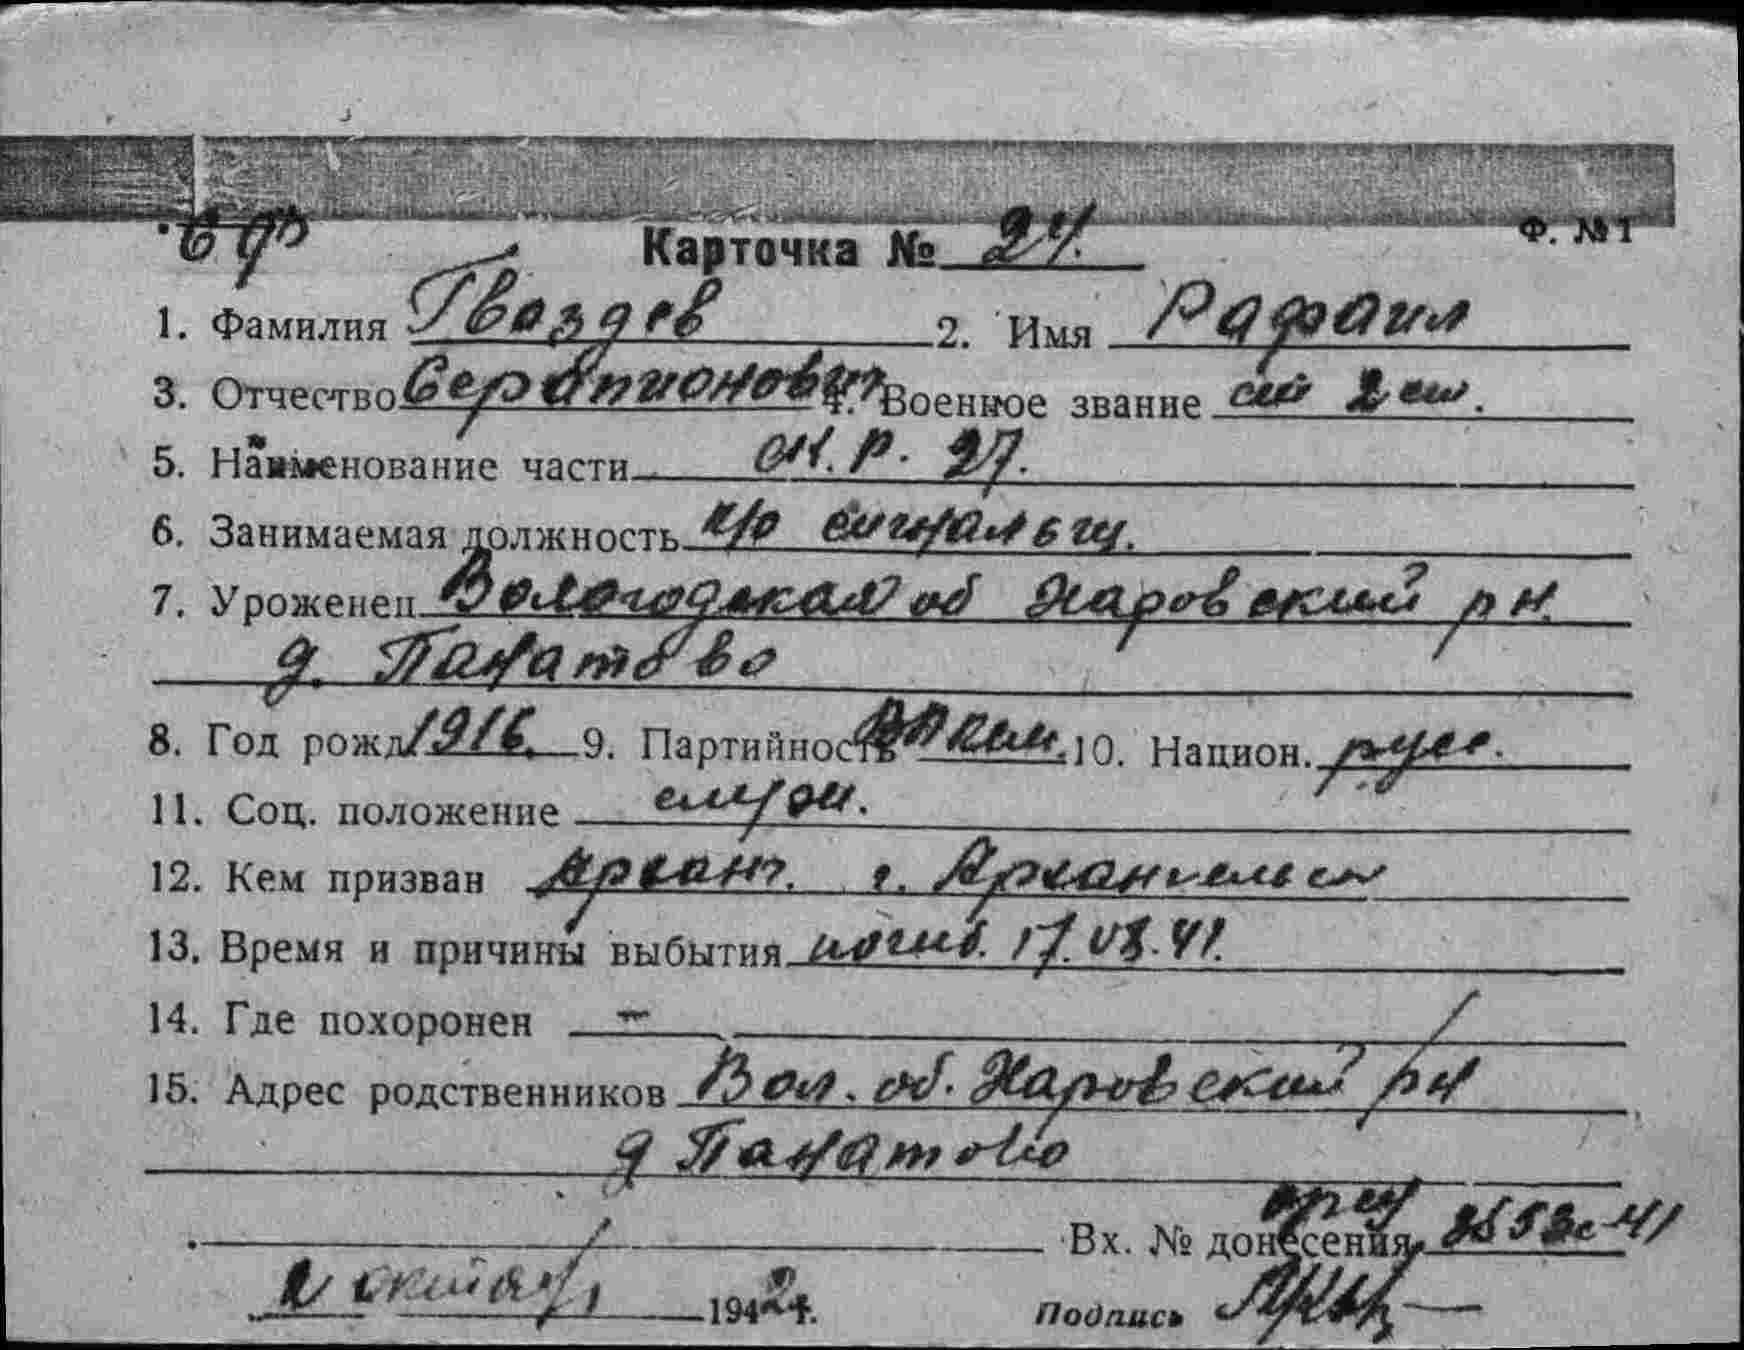 Ф. №1
Карточка № 24.
1. Фамилия Гвоздев 2. Имя Рафаил
3. Отчество Серапионович 4. Военное звание
5. Наименование части
6. Занимаемая должность к/о сигнальщ.
7. Уроженец Вологодская об Харовский рн.
д. Панатово
8. Год рожд 1916. 9. Партийность 10. Национ. русс.
11. Соц. положение
12. Кем призван Архан. г. Архангельск
13. Время и причины выбытия погиб. 17.08.41.
14. Где похоронен —
15. Адрес родственников Вол. об. Харовский рн
д Панатово
Вх. № донесения
октября 1942 г.
Подпись